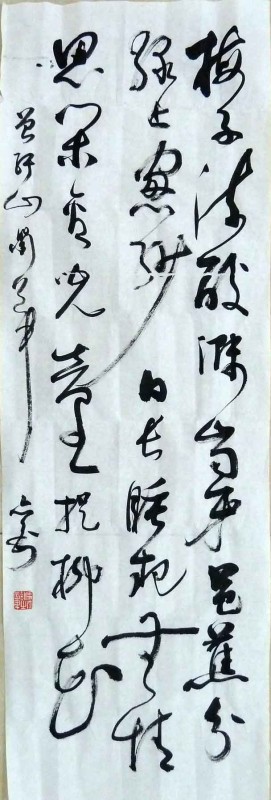 梅子流酸溅齿牙芭蕉分
绿上窗纱日长睡起无情
思闲看儿童捉柳花